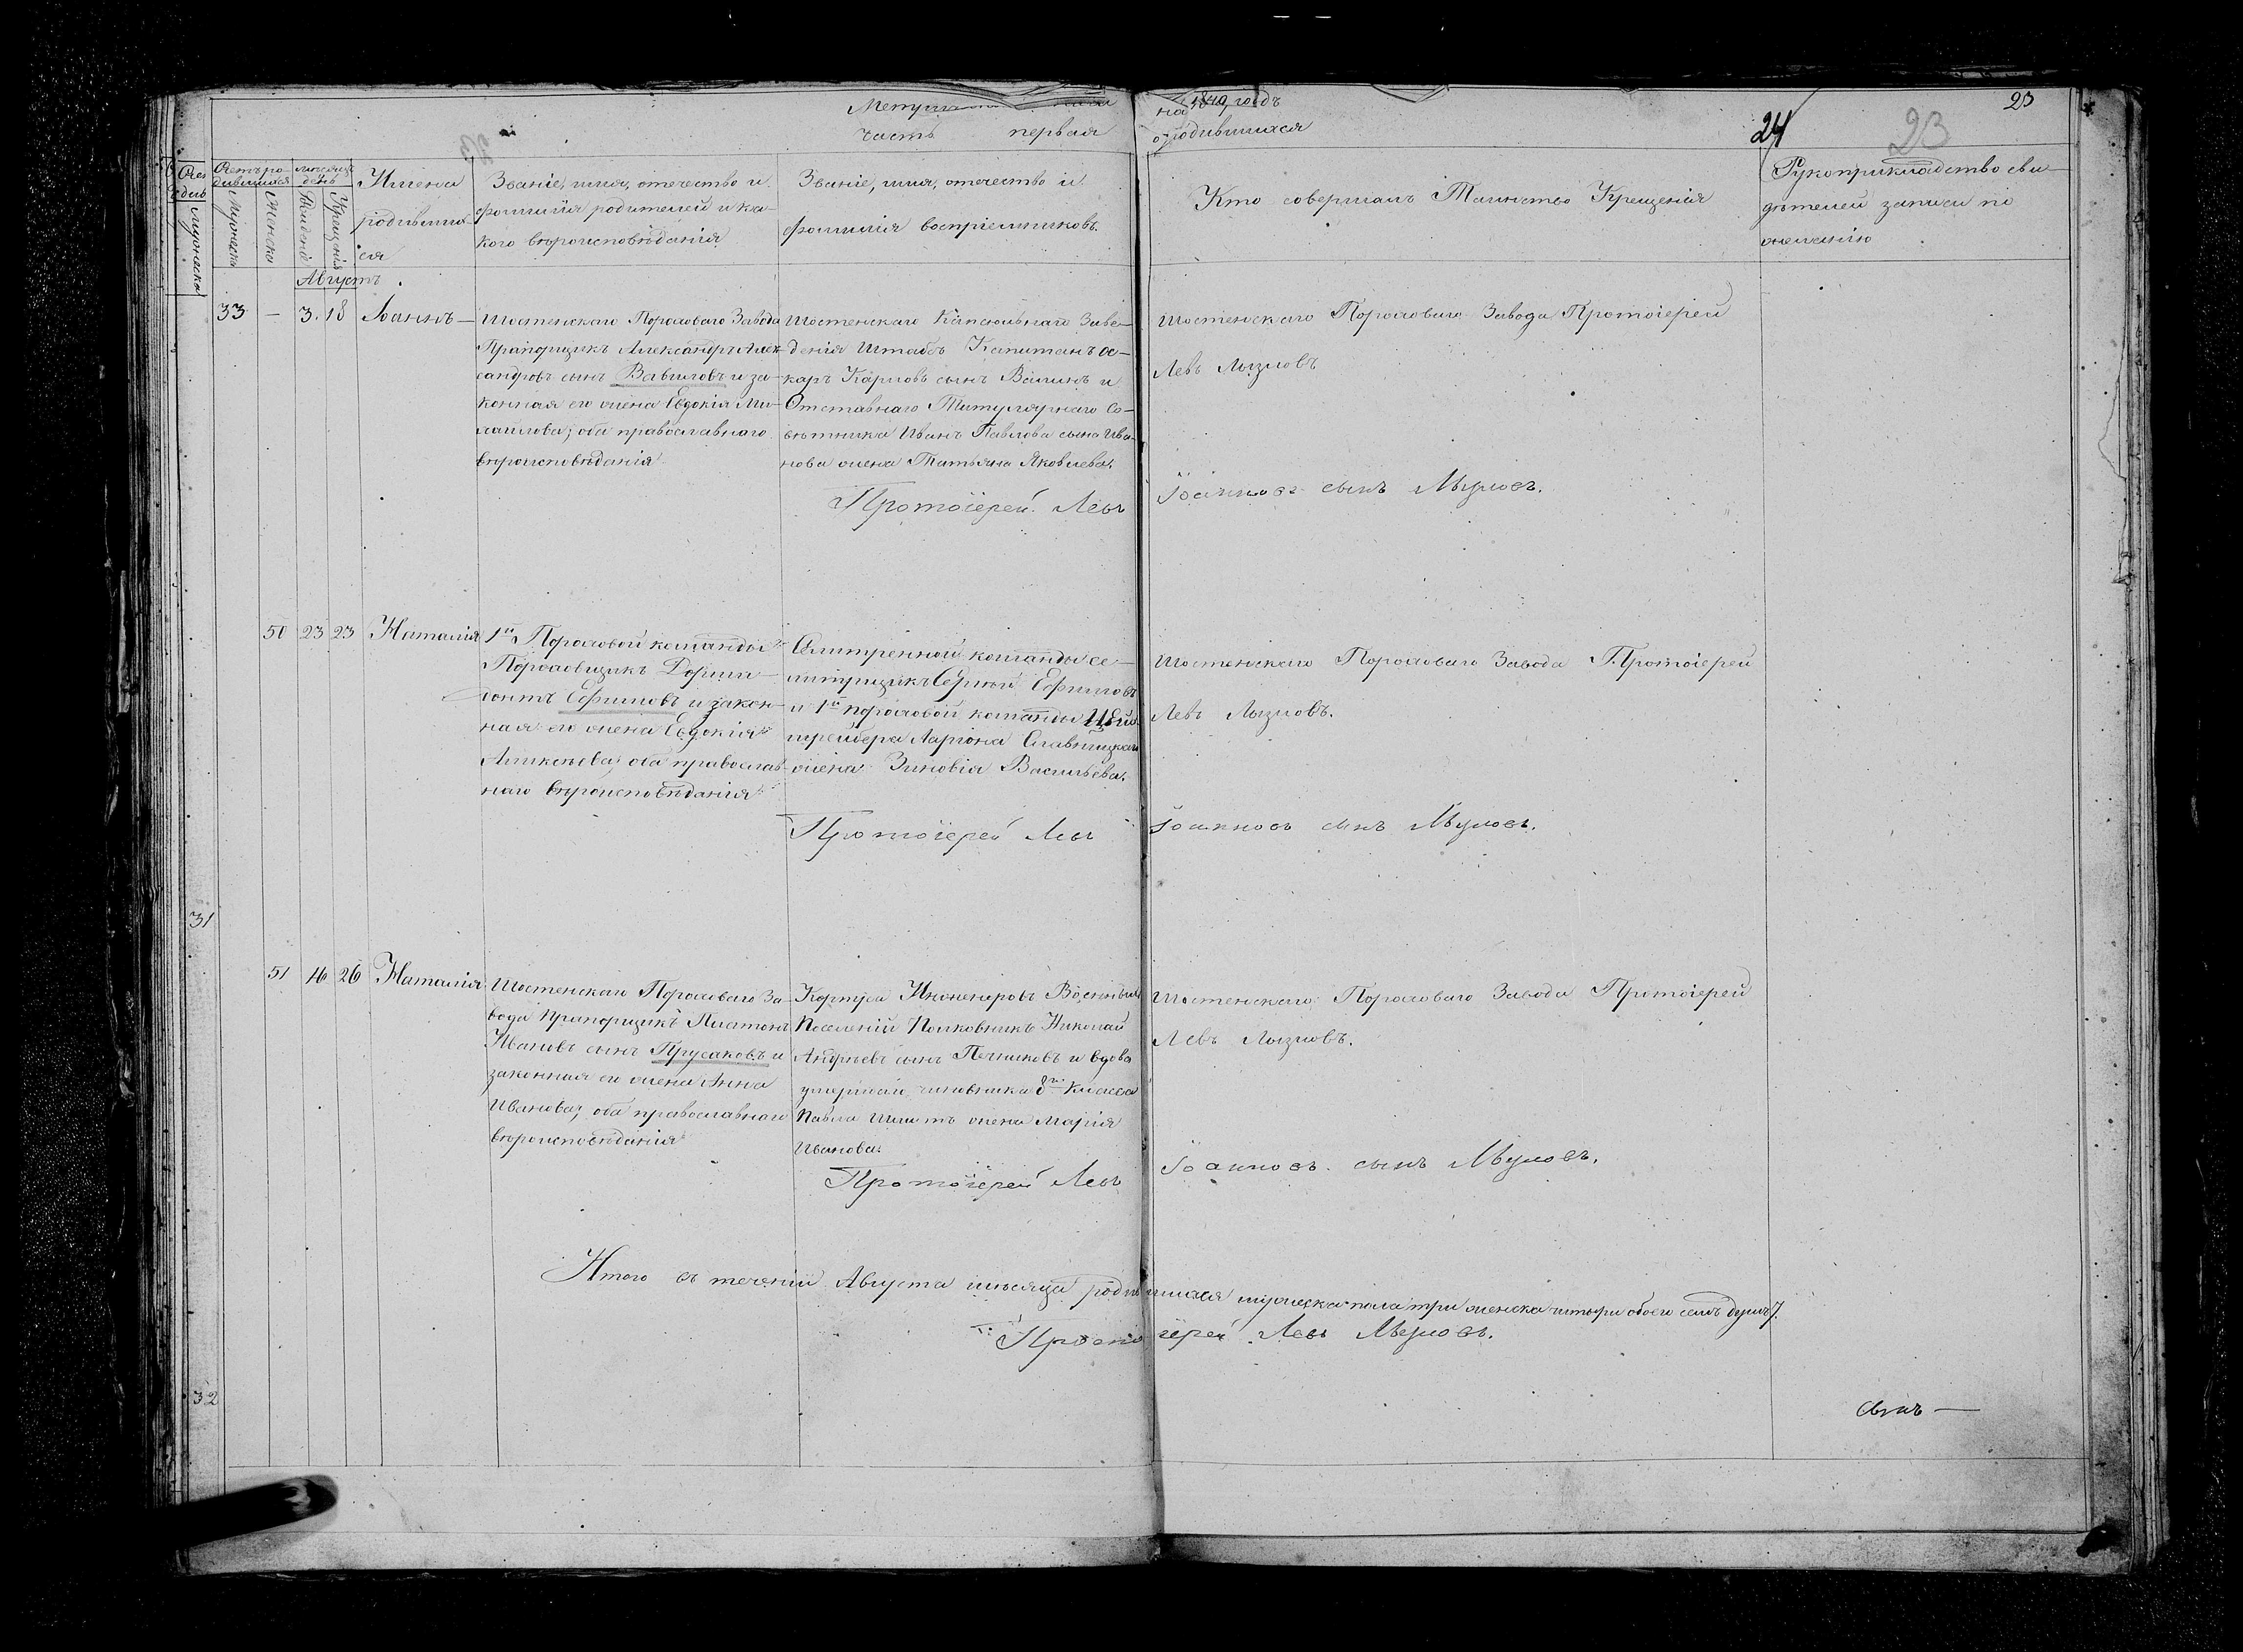 Метри
на 1840 годъ
часть первая
о родившихся
24
23
23
Счетъ ро-
дившихся
Мужеска
Женска
мѣсяцъ
день
Рожденія
Крещенія
Имена
родивших
ся
Званіе, имя, отечество и
фамилія родителей и ка-
кого вѣроисповѣданія
Званіе, имя, отечество и
фамилія воспріемниковъ.
Кто совершалъ Таинство Крещенія
Рукоприкладство сви-
дѣтелей записи по
желанію
Августъ.
33 — 3. 18 Іоаннъ —
Шостенскаго Пороховаго Завода
Прапорщикъ Александръ Алек-
сандровъ сынъ Вавиловъ и за-
конная его жена Евдокія Ми-
хайлова; оба православнаго
вѣроисповѣданія
Шостенскаго Капсюльнаго Заве-
денія Штабсъ Капитанъ Ос-
каръ Карловъ сынъ и
Отставнаго Титулярнаго Со-
вѣтника Иванъ Павлова сына Ива-
нова жена Татьяна Яковлева.
Шостенскаго Пороховаго Завода Протоіерей
Левъ Лызловъ
Протоіерей Левъ Іоанновъ сынъ Лызловъ.
50 23 23 Наталія
1й Пороховой команды
Пороховщикъ
Ефимовъ и закон-
ная его жена Евдокія
Алексѣева; оба православ-
наго вѣроисповѣданія
Селитренной команды се-
литрщикъ Сергѣй Ефимовъ
и 1й пороховой команды
Ларіона
жена Зиновія Васильева.
Шостенскаго Пороховаго Завода Протоіерей
Левъ Лызловъ.
Протоіерей Левъ Іоанновъ сынъ Лызловъ.
31
51 16 26 Наталія
Шостенскаго Пороховаго За-
вода Прапорщикъ Платонъ
Ивановъ сынъ Прусаковъ и
законная его жена Анна
Иванова; оба православнаго
вѣроисповѣданія
Корпуса Инженеровъ Военныхъ
Поселеній Полковникъ Николай
Андреевъ сынъ и вдова
умершаго чиновника 8го класса
Павла жена Марія
Иванова.
Шостенскаго Пороховаго Завода Протоіерей
Левъ Лызловъ.
Протоіерей Левъ Іоанновъ сынъ Лызловъ.
Итого въ теченіи Августа мѣсяца родившихся мужеска пола три женска четыре обоего семь душъ 7.
Протоіерей Левъ Лызловъ.
32
сынъ —